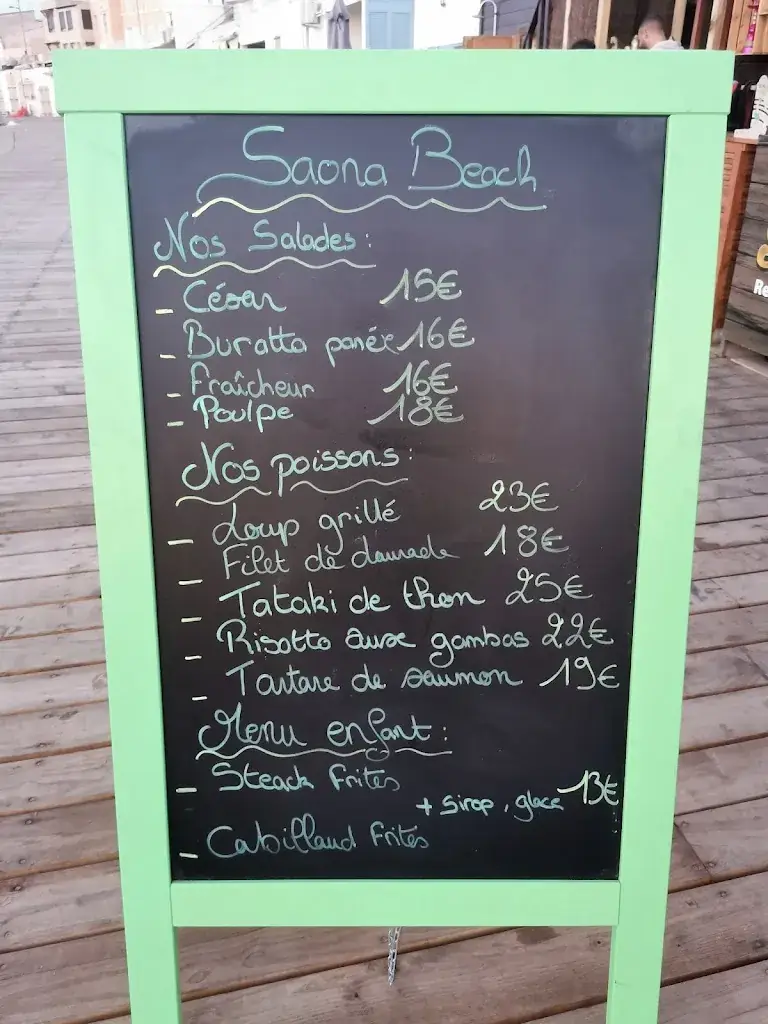 Saona Beach
Nos Salades:
- César 15€
- Buratta panée 16€
- Fraîcheur 16€
- Poulpe 18€
Nos poissons:
- Loup grillé 23€
- Filet de daurade 18€
- Tataki de thon 25€
- Risotto aux gambas 22€
- Tartare de saumon 19€
Menu enfant:
- Steack Frites
+ sirop, glace 13€
- Cabillaud Frites